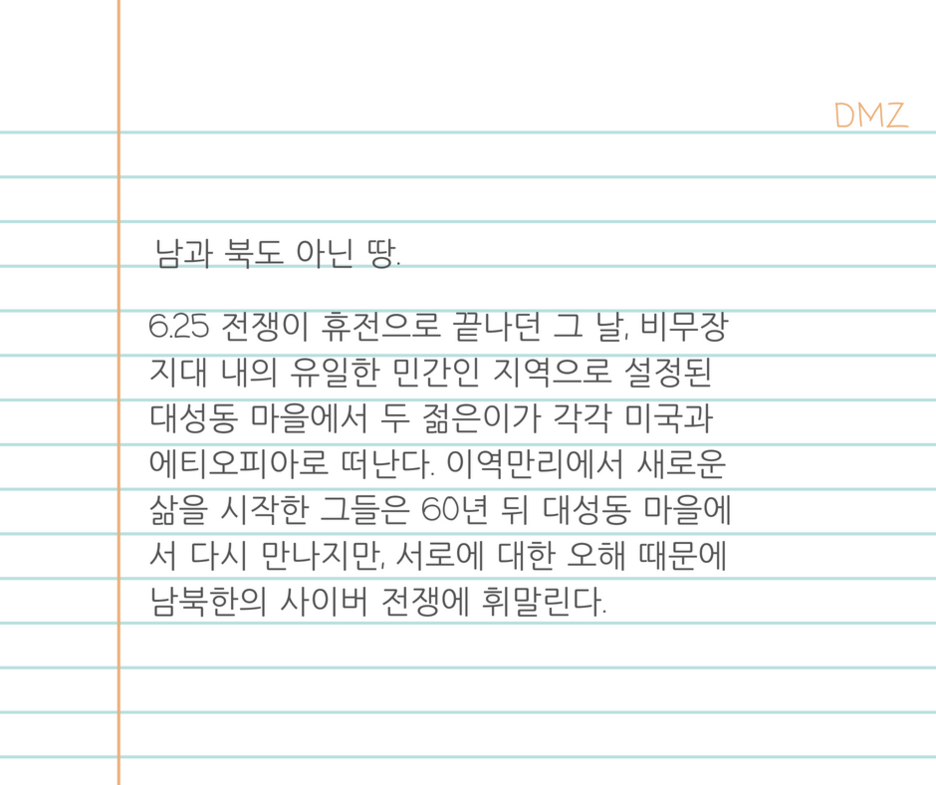 DMZ
남과 북도 아닌 땅.
6.25 전쟁이 휴전으로 끝나던 그 날, 비무장
지대 내의 유일한 민간인 지역으로 설정된
대성동 마을에서 두 젊은이가 각각 미국과
에티오피아로 떠난다. 이역만리에서 새로운
삶을 시작한 그들은 60년 뒤 대성동 마을에
서 다시 만나지만, 서로에 대한 오해 때문에
남북한의 사이버 전쟁에 휘말린다.